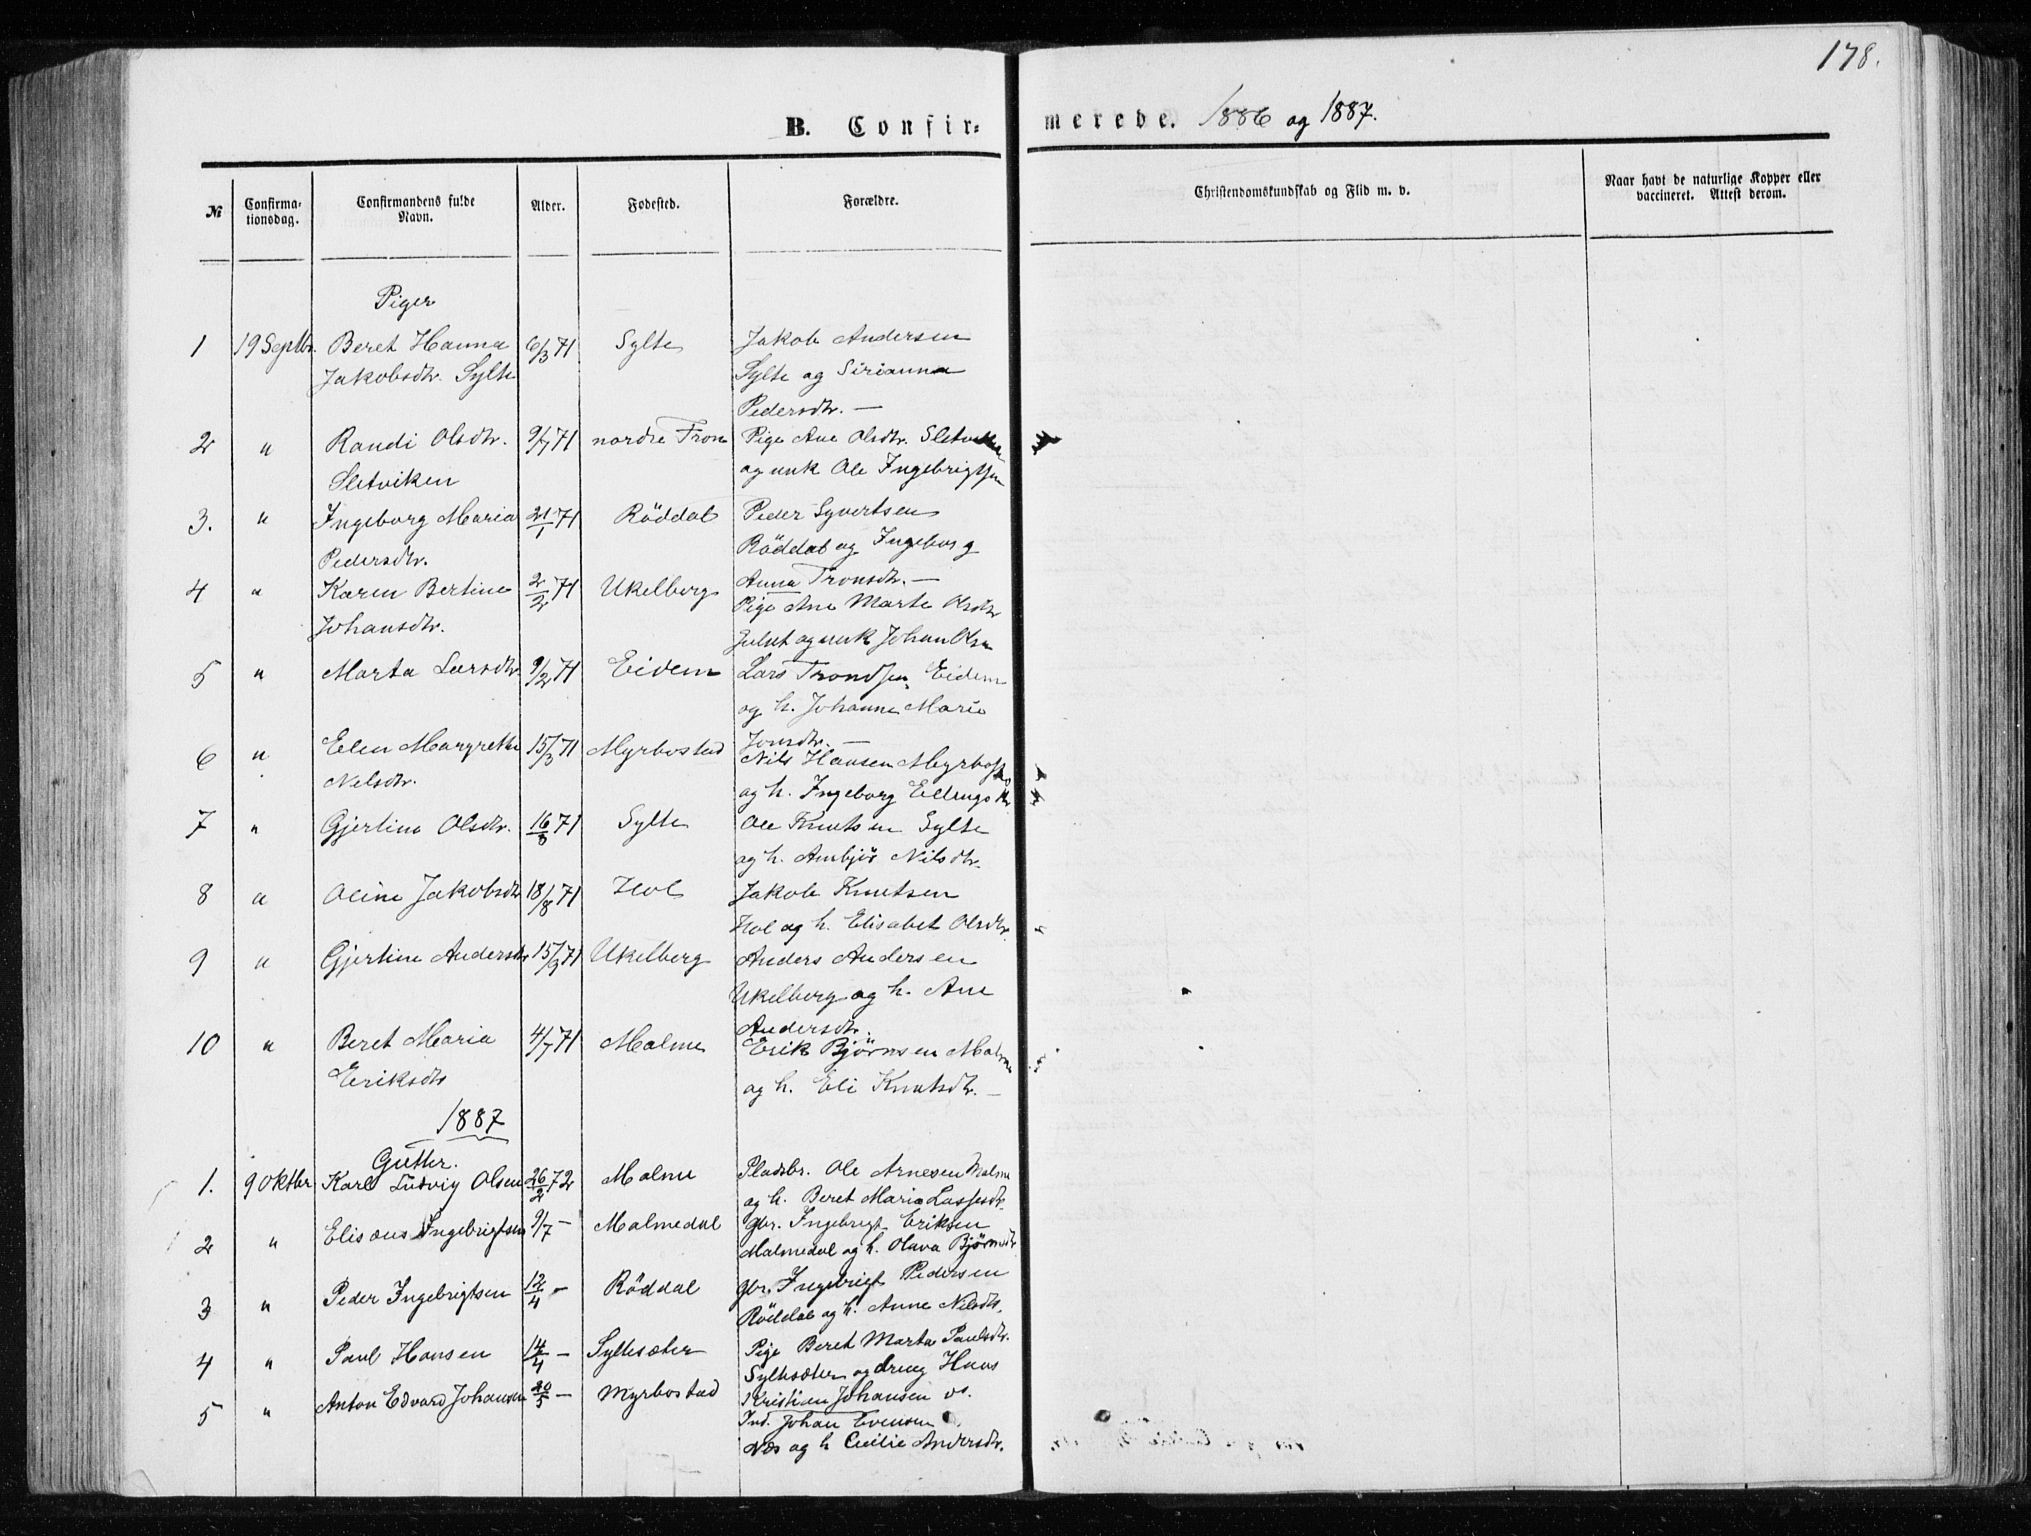 178.
B. Confirmerede. 1886 og 1887.
№ Confirmationsdag. Confirmandens fulde Navn. Alder. Fødested. Forældre. Christendomskundskab og Flid m. v. Naar havt de naturlige Kopper eller vaccineret. Attest derom.
Piger
1 19 Septbr. Beret Hanna 6/3 71 Sylte Jakob Andersen
Jakobsdtr. Sylte Sylte og Sirianna
Pedersdtr. —
2 " Randi Olsdtr. 9/7 71 nordre Fron Pige Ane Olsdtr. Sletviken
Sletviken og unk Ole Ingebrigtsen
3. " Ingeborg Maria 21/1 71 Röddal Peder Syvertsen
Pedersdtr. Röddal og Ingeborg
Anna Tronsdtr. —
4 " Karen Bertine 2/2 71 Ukelberg Pige Ane Marte Olsdtr
Johansdtr. og unk Johan Olsen
5 " Marta Larsdtr. 9/2 71 Eidem Lars Trondsen Eidem
og h. Johanne Marie
Jonsdtr. —
6 " Elen Margrethe 15/3 71 Myrbostad Nils Hansen Myrbostad
Nilsdtr. og h. Ingeborg Ellingsdtr
7 " Gjertine Olsdtr. 16/8 71 Sylte Ole Knutsen Sylte
og h. Ambjör Nilsdtr.
8 " Oline Jakobsdtr 18/8 71 Hol Jakob Knutsen
Hol og h. Elisabet Olsdtr.
9 " Gjertine Andersdtr 15/9 71 Ukelberg Anders Andersen
Ukelberg og h. Ane
Andersdtr.
10 " Beret Maria 4/7 71 Malme Erik Björnsen Malme
Eriksdtr og h. Eli Knutsdtr. —
1887
Gutter.
1. 9 Oktbr Karl Ludvig Olsen 26/2 72 Malme Pladsbr. Ole Arnesen Malme
og h. Beret Maria Lassesdtr.
2 " Elisæus Ingebrigtsen 9/7 — Malmedal gbr. Ingebrigt Eriksen
Malmedal og h. Olava Björnsdtr
3 " Peder Ingebrigtsen 12/4 — Röddal gbr. Ingebrigt Pedersen
Röddal og h. Anne Nilsdtr.
4 " Paul Hansen 14/4 — Syltesæter Pige Beret Marta Paulsdtr.
Syltesæter og drug Hans
Kristian Johansen
5 " Anton Edvard Johansen 20/5 — Myrbostad Ind. Johan Evensen
Næs og h Cecilie Andersdtr.